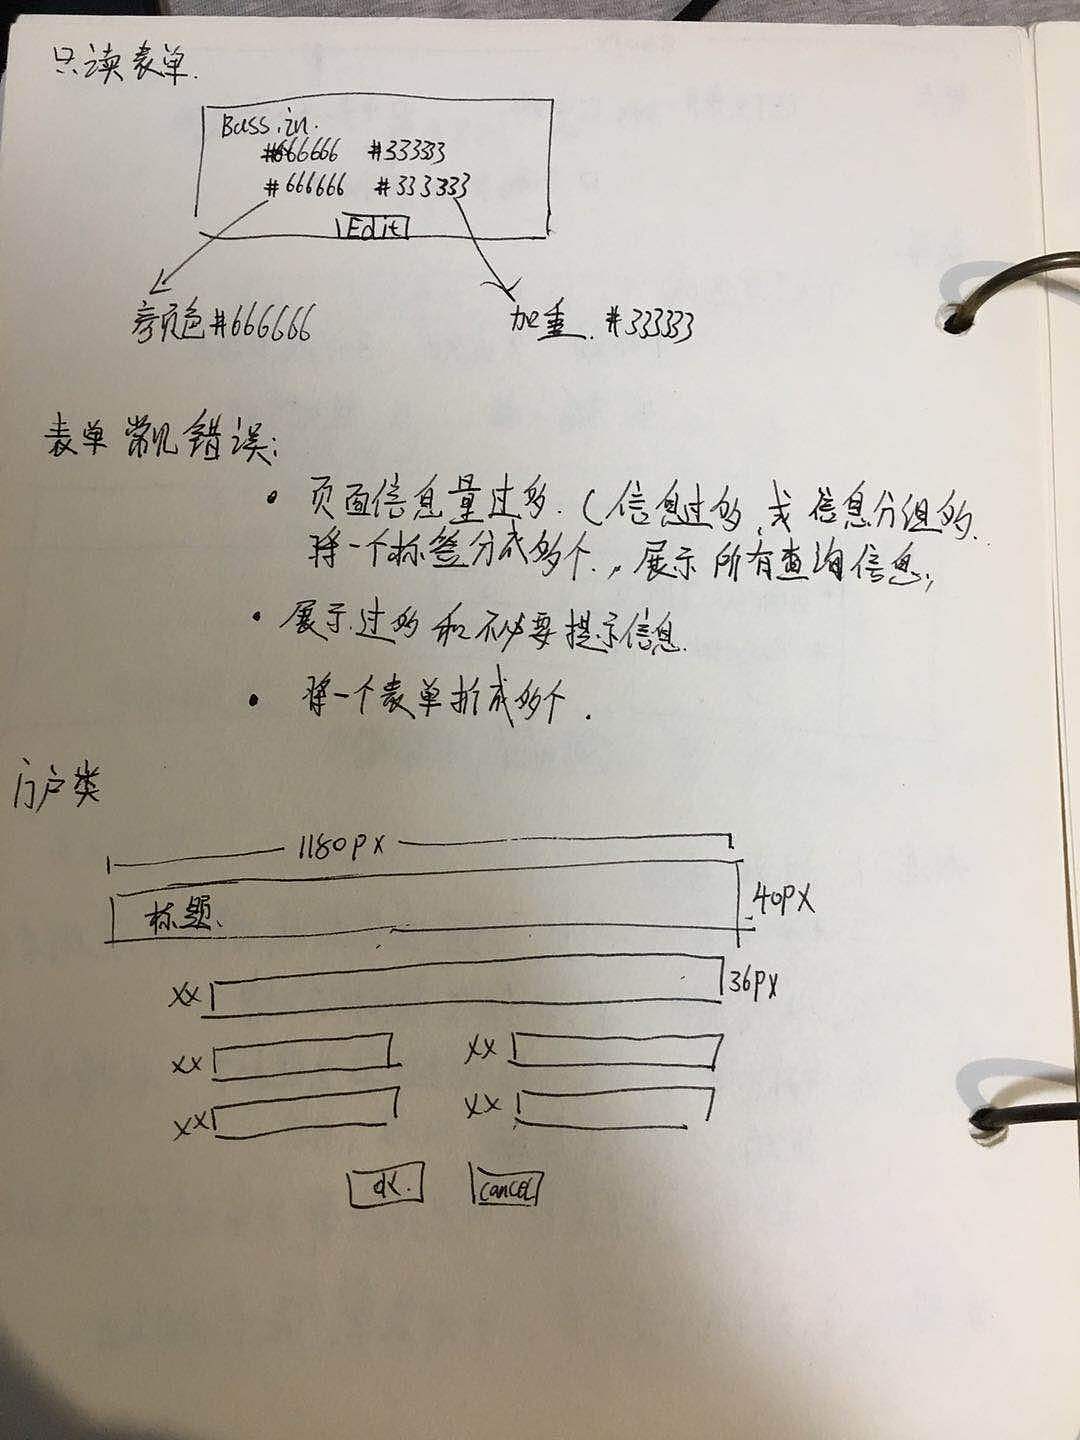 只读表单.
Bass.in.
#666666 #333333
#666666 #333333
Edit
颜色#666666
加重.#333333
表单常见错误:
• 页面信息量过多.(信息过多,或信息分组的.
将一个标签分成多个.,展示所有查询信息,
• 展示过多和不必要提示信息.
• 将一个表单拆成多个.
门户类
1180px
标题.
40px
xx
36px
xx xx
xx xx
ok. cancel